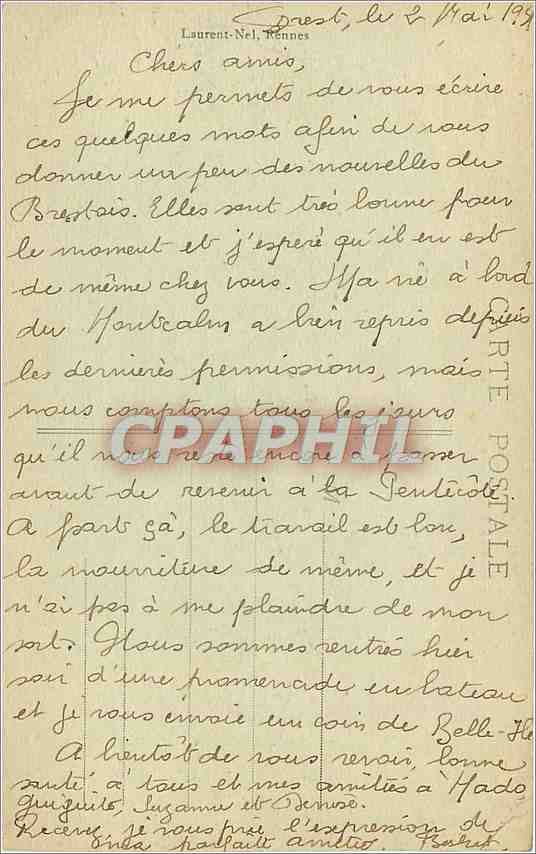 Brest, le 2 Mai 19
Laurent-Nel, Rennes
Chers amis,
Je me permets de vous écrire
ces quelques mots afin de vous
donner un peu des nouvelles du
Brestois. Elles sont très bonne pour
le moment et j'esperè qu'il en est
de même chez vous. Ma vie à bord
du Montcalm a bien repris depuis
les dernierès permissions, mais
nous comptons tous les jours
qu'il nous reste encore à passer
avant de revenir à la Pentecôte.
A part çà, le travail est bon,
la nourriture de même, et je
n'ai pas à me plaindre de mon
sort. Nous sommes rentrés hier
soir d'une promenade en bateau
et je vous envoie un coin de Belle-Ile
A bientôt de vous revoir, bonne
santé à tous et mes amitiés à Mado
Guiguite, Suzanne et Denise.
Recevez, je vous prie l'expression de
mes parfaite amitiés.
CARTE POSTALE
CPAPHIL